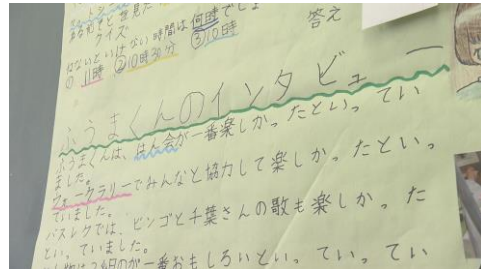 クイズ
ないといけない時間は何時でしょ
答え
① 11時 ②10時30分 ③10時
ふうまくんのインタビュー
ふうまくんは、はん会が一番楽しかったといってい
ました。
ウォークラリーでみんなと協力して楽しかったといっ
ていました。
バスレクでは、ビンゴと千葉さんの歌も楽しかった
といっていました。
2日目のが一番おもしろいといっていってい